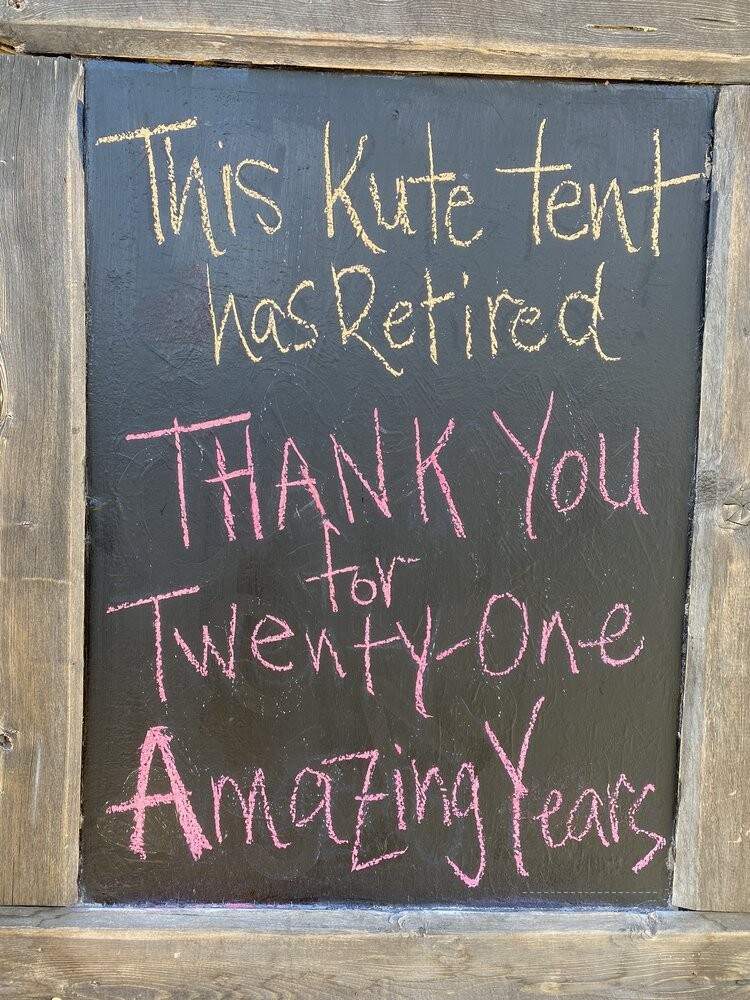 This Kute tent
has Retired
THANK YOU
for
Twenty-One
Amazing Years